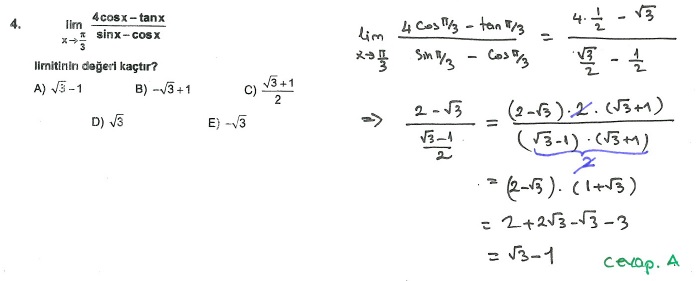 4. lim x→π/3 (4cosx – tanx)/(sinx – cosx)
limitinin değeri kaçtır?
A) √3 – 1 B) –√3 + 1 C) (√3 + 1)/2
D) √3 E) –√3
lim x→π/3 (4 Cos π/3 – tan π/3)/(Sin π/3 – Cos π/3) = (4 · 1/2 – √3)/(√3/2 – 1/2)
⇒ (2 – √3)/((√3 – 1)/2) = ((2 – √3) · 2 · (√3 + 1))/((√3 – 1) · (√3 + 1))
2
= (2 – √3) · (1 + √3)
= 2 + 2√3 – √3 – 3
= √3 – 1
Cevap. A